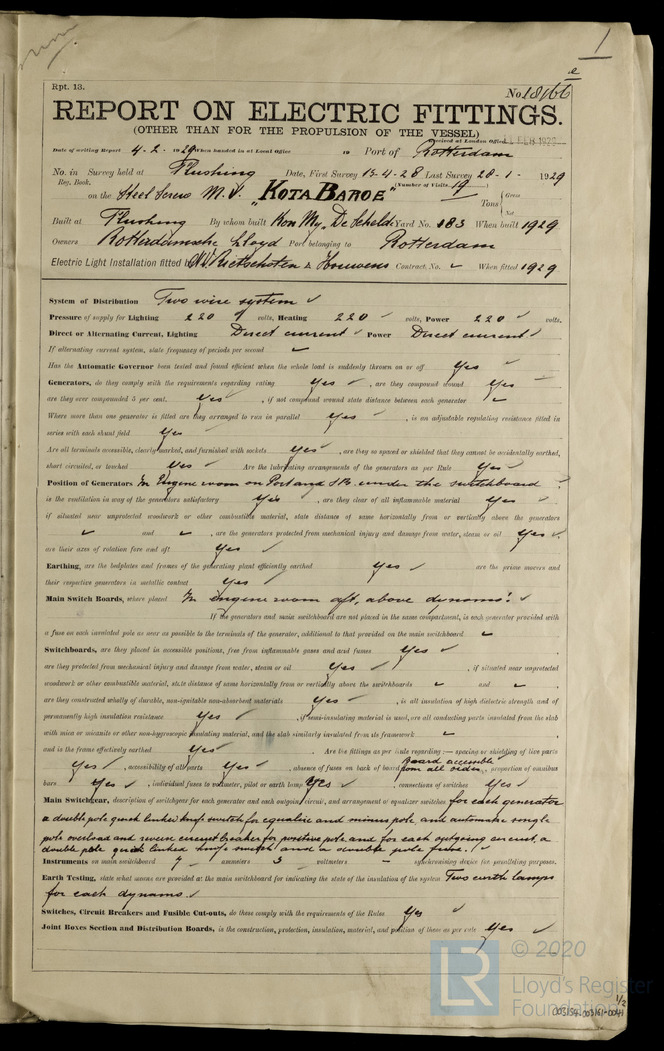 1
Rpt. 13.
No. 18166
REPORT ON ELECTRIC FITTINGS.
(OTHER THAN FOR THE PROPULSION OF THE VESSEL)
Received at London Office 11 FEB 1929
Date of writing Report 4-2-1929 When handed in at Local Office 19 Port of Rotterdam
No. in Survey held at Flushing Date, First Survey 13-4-28 Last Survey 20-1-1929
Reg. Book. (Number of Visits 19)
on the Steel Screw M.V. "KOTA BAROE" Tons { Gross Net
Built at Flushing By whom built Kon. My. De Schelde Yard No. 183 When built 1929
Owners Rotterdamsche Lloyd Port belonging to Rotterdam
Electric Light Installation fitted by N.V. Rietschoten & Houwens Contract No. When fitted 1929
System of Distribution Two wire system ✓
Pressure of supply for Lighting 220 volts, Heating 220 volts, Power 220 ✓ volts.
Direct or Alternating Current, Lighting Direct current ✓ Power Direct current ✓
If alternating current system, state frequency of periods per second
Has the Automatic Governor been tested and found efficient when the whole load is suddenly thrown on or off Yes ✓
Generators, do they comply with the requirements regarding rating Yes ✓, are they compound wound Yes
are they over compounded 5 per cent. Yes ✓, if not compound wound state distance between each generator
Where more than one generator is fitted are they arranged to run in parallel Yes ✓, is an adjustable regulating resistance fitted in
series with each shunt field Yes ✓
Are all terminals accessible, clearly marked, and furnished with sockets Yes ✓, are they so spaced or shielded that they cannot be accidentally earthed,
short circuited, or touched Yes ✓ Are the lubricating arrangements of the generators as per Rule Yes ✓
Position of Generators In Engine room on Port and SB. under the switchboard
is the ventilation in way of the generators satisfactory Yes ✓, are they clear of all inflammable material Yes ✓
if situated near unprotected woodwork or other combustible material, state distance of same horizontally from or vertically above the generators
and , are the generators protected from mechanical injury and damage from water, steam or oil Yes ✓
are their axes of rotation fore and aft Yes ✓
Earthing, are the bedplates and frames of the generating plant efficiently earthed Yes ✓ are the prime movers and
their respective generators in metallic contact Yes ✓
Main Switch Boards, where placed In engine room aft, above dynamo's ✓
If the generators and main switchboard are not placed in the same compartment, is each generator provided with
a fuse on each insulated pole as near as possible to the terminals of the generator, additional to that provided on the main switchboard
Switchboards, are they placed in accessible positions, free from inflammable gases and acid fumes Yes ✓
are they protected from mechanical injury and damage from water, steam or oil Yes ✓, if situated near unprotected
woodwork or other combustible material, state distance of same horizontally from or vertically above the switchboards and
are they constructed wholly of durable, non-ignitable non-absorbent materials Yes ✓, is all insulation of high dielectric strength and of
permanently high insulation resistance Yes ✓, if semi-insulating material is used, are all conducting parts insulated from the slab
with mica or micanite or other non-hygroscopic insulating material, and the slab similarly insulated from its framework
and is the frame effectively earthed Yes ✓. Are the fittings as per Rule regarding:— spacing or shielding of live parts
Yes ✓, accessibility of all parts Yes ✓, absence of fuses on back of board Board accessible from all sides, proportion of omnibus
bars Yes ✓, individual fuses to voltmeter, pilot or earth lamp Yes ✓, connections of switches Yes ✓
Main Switchgear, description of switchgear for each generator and each outgoing circuit, and arrangement of equalizer switches for each generator
a double pole quick linked knife switch for equalise and minus pole, and automatic single
pole overload and reverse current breaker for positive pole and for each outgoing circuit, a
double pole quick linked knife switch and a double pole fuse. ✓
Instruments on main switchboard 7 ammeters 3 voltmeters - synchronising device for paralleling purposes.
Earth Testing, state what means are provided at the main switchboard for indicating the state of the insulation of the system Two earth lamps
for each dynamo. ✓
Switches, Circuit Breakers and Fusible Cut-outs, do these comply with the requirements of the Rules Yes ✓
Joint Boxes Section and Distribution Boards, is the construction, protection, insulation, material, and position of these as per rule Yes ✓
LR
© 2020
Lloyd's Register
Foundation
1/2
003154-003161-0041